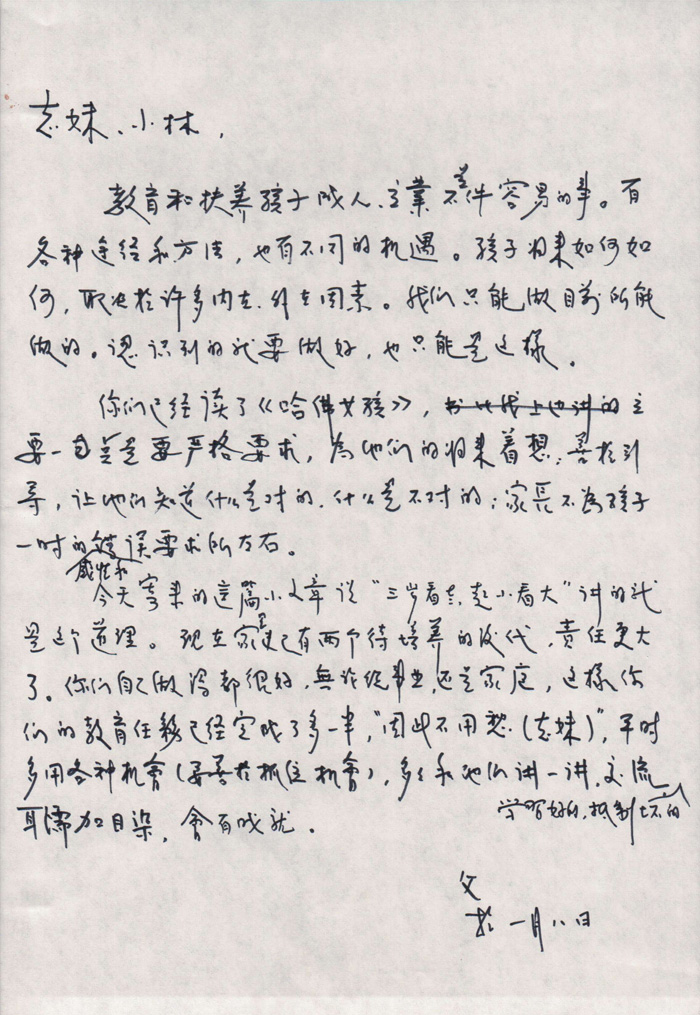 志妹、小林，
教育和扶养孩子成人、立業不是件容易的事。有
各种途经和方法，也有不同的机遇。孩子将来如何如
何，取决於许多内在、外在因素。我们只能做目前所能
做的。認识到的就要做好，也只能是这樣。
你们已经读了《哈佛女孩》，主
要一点是要严格要求，为他们的将来着想；善於引
导，让他们知道什么是对的、什么是不对的；家長不為孩子
一时的错误要求所左右。
今天寄来的这篇小文章说“三岁看老，起小看大”讲的就
是这个道理。现在家里已有两个待培养的后代，责任更大
了。你们自己做得都很好，無论是事业，还是家庭，这樣你
们的教育任務已经完成了多一半，“因此不用愁(志妹)”，平时
多用各种机會(要善於抓住机會)，多多和他们讲一讲，交流
学習好的，抵制坏的
耳濡加目染，會有成就。
父
於一月八日